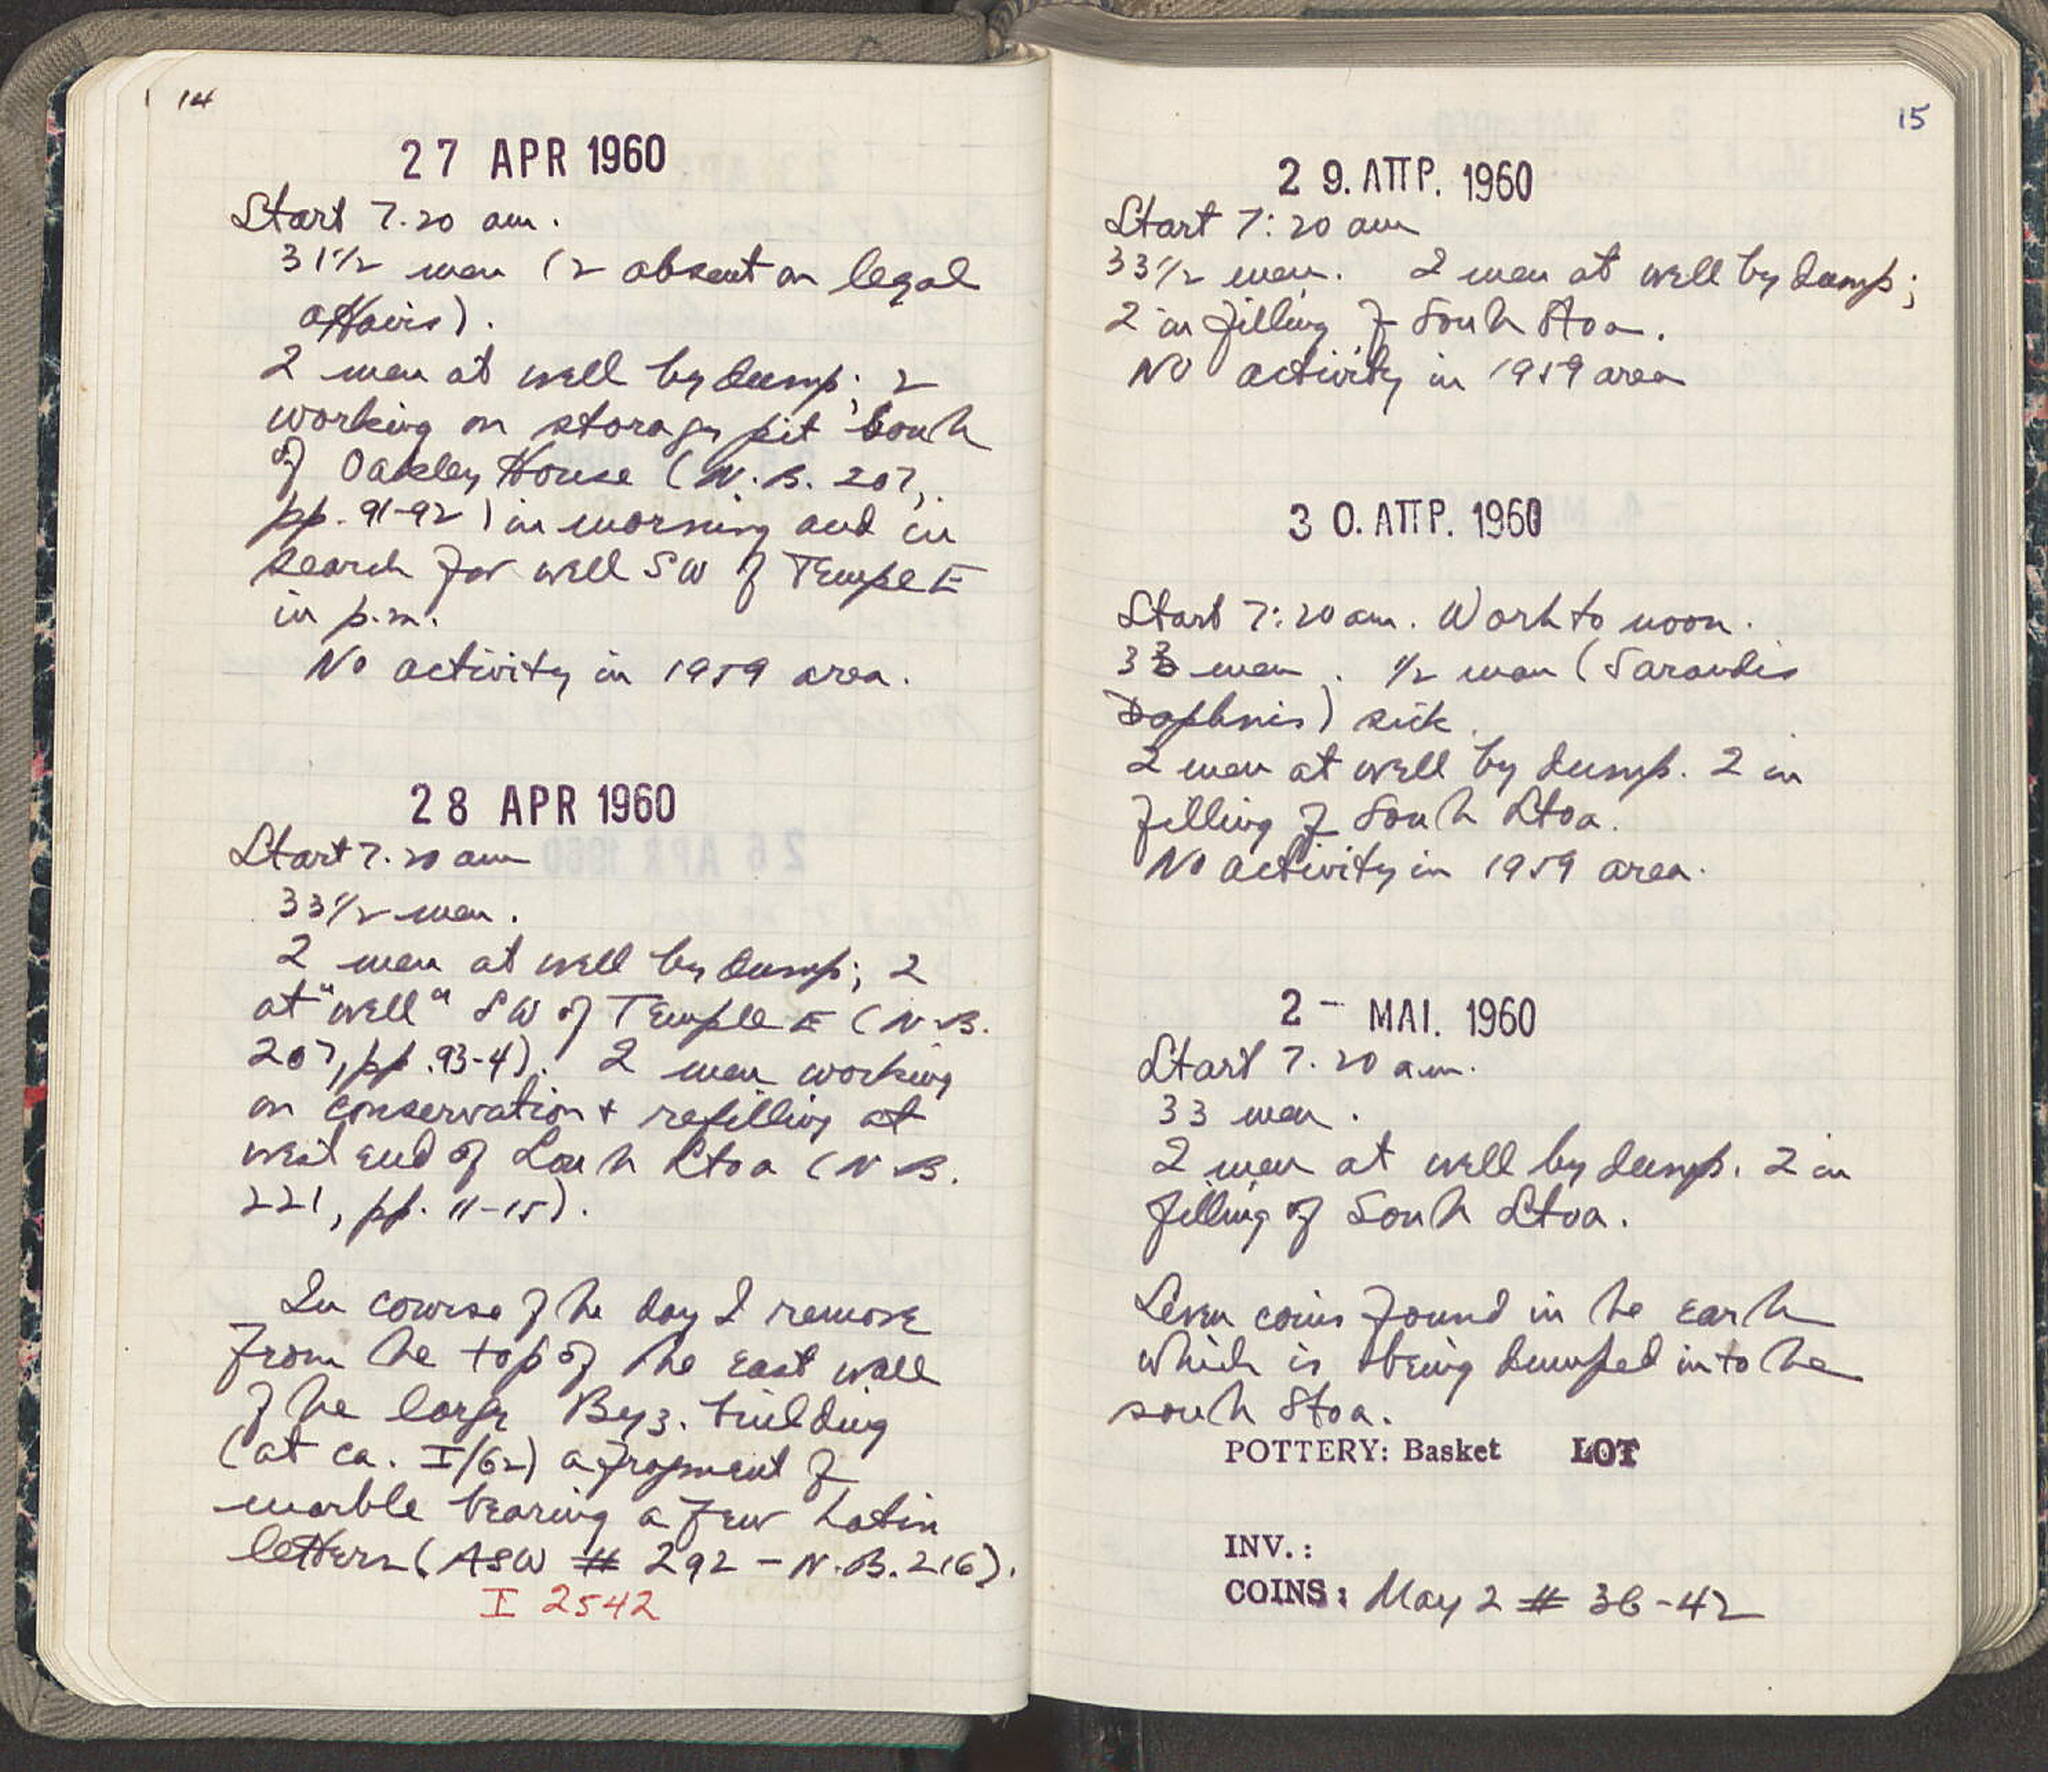 14
27 APR 1960
Start 7.20 am.
31 1/2 men (2 absent on legal
affairs).
2 men at well by dump; 2
working on storage pit South
of Oakley House (N.B. 207,
pp. 91-92) in morning and in
search for well SW of Temple E
in p.m.
No activity in 1959 area.
28 APR 1960
Start 7.20 am
33 1/2 men.
2 men at well by dump; 2
at "well" SW of Temple E (N.B.
207, pp. 93-4). 2 men working
on conservation + refilling at
west end of South Stoa (N.B.
221, pp. 11-15).
In course of the day I remove
from the top of the east wall
of the large Byz. building
(at ca. I/62) a fragment of
marble bearing a few Latin
letters (ASW # 292 - N.B. 216).
I 2542
15
29. ΑΠΡ. 1960
Start 7:20 am
33 1/2 men. 2 men at well by dump;
2 in filling of South Stoa.
No activity in 1959 area
30. ΑΠΡ. 1960
Start 7:20 am. Work to noon.
33 men. 1/2 man (Sarandis
Daphnis) sick.
2 men at well by dump. 2 in
filling of South Stoa.
No activity in 1959 area.
2 - ΜΑΙ. 1960
Start 7.20 a.m.
33 men.
2 men at well by dump. 2 in
filling of South Stoa.
Seven coins found in the earth
which is being dumped into the
south Stoa.
POTTERY: Basket LOT
INV.:
COINS: May 2 # 36-42